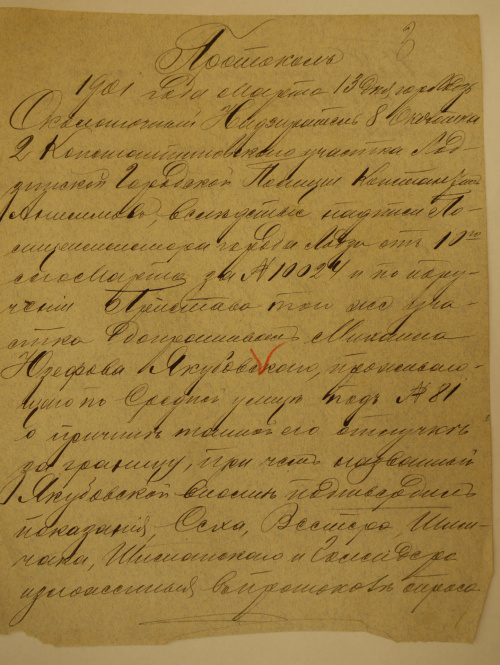 Протоколъ
1901 года Марта 13 дня город Лодзь
Околоточный Надзиратель 8 Околотка
2 Константиновскаго участка Лод-
зинской Городской Полиции Константинъ
Анисимовъ, вследствие надписи По-
лицеймейстера города Лодзи отъ 10го
сего Марта за № 10024 и по пору-
чению Пристава того же уча-
стка допрашивалъ Михаила
Юзефова Якубовскаго, прожива-
ющаго по Средней улице подъ № 81
о причине тайной его отлучки
за границу, при чемъ названный
Якубовский вполне подтвердилъ
показания, Вестера, Шим-
чака, Шиманскаго и
изложенныя въ протоколе опроса